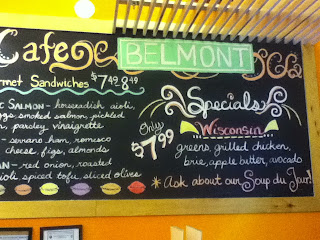 Cafe
BELMONT
rmet Sandwiches $7.49 8.49
Specials
SALMON - horseradish aioli,
smoked salmon, pickled
parsley vinaigrette
serrano ham, romesco
cheese, figs, almonds
red onion, roasted
ioli spiced tofu, sliced olives
Only
$7.99
Wisconsin
greens, grilled chicken,
brie, apple butter, avocado
* Ask about our Soup du Jour!